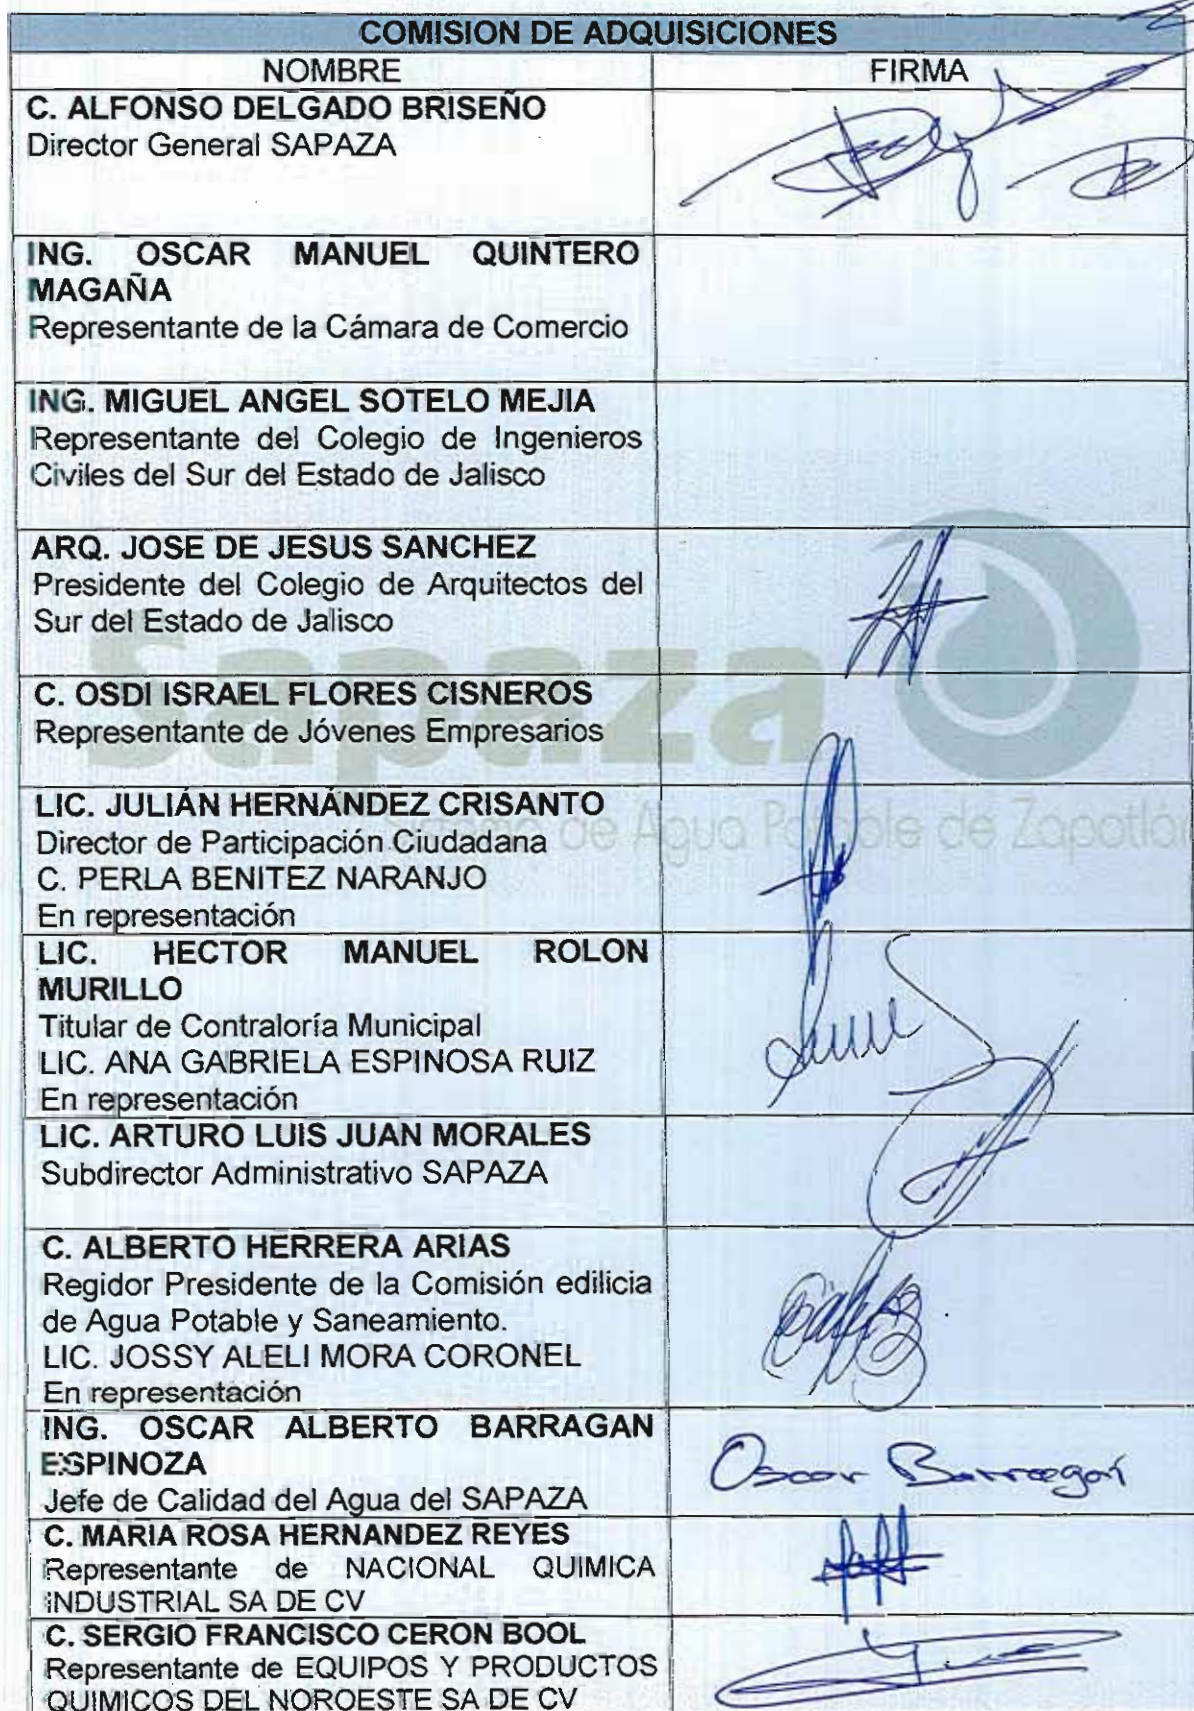 COMISION DE ADQUISICIONES
NOMBRE FIRMA
C. ALFONSO DELGADO BRISEÑO
Director General SAPAZA
ING. OSCAR MANUEL QUINTERO
MAGAÑA
Representante de la Cámara de Comercio
ING. MIGUEL ANGEL SOTELO MEJIA
Representante del Colegio de Ingenieros
Civiles del Sur del Estado de Jalisco
ARQ. JOSE DE JESUS SANCHEZ
Presidente del Colegio de Arquitectos del
Sur del Estado de Jalisco
Sapaza
C. OSDI ISRAEL FLORES CISNEROS
Representante de Jóvenes Empresarios
LIC. JULIÁN HERNÁNDEZ CRISANTO
Sistema de Agua Potable de Zapotlán
Director de Participación Ciudadana
C. PERLA BENITEZ NARANJO
En representación
LIC. HECTOR MANUEL ROLON
MURILLO
Titular de Contraloría Municipal
LIC. ANA GABRIELA ESPINOSA RUIZ
En representación
LIC. ARTURO LUIS JUAN MORALES
Subdirector Administrativo SAPAZA
C. ALBERTO HERRERA ARIAS
Regidor Presidente de la Comisión edilicia
de Agua Potable y Saneamiento.
LIC. JOSSY ALELI MORA CORONEL
En representación
ING. OSCAR ALBERTO BARRAGAN
ESPINOZA
Jefe de Calidad del Agua del SAPAZA
Oscar Barragan
C. MARIA ROSA HERNANDEZ REYES
Representante de NACIONAL QUIMICA
INDUSTRIAL SA DE CV
C. SERGIO FRANCISCO CERON BOOL
Representante de EQUIPOS Y PRODUCTOS
QUIMICOS DEL NOROESTE SA DE CV